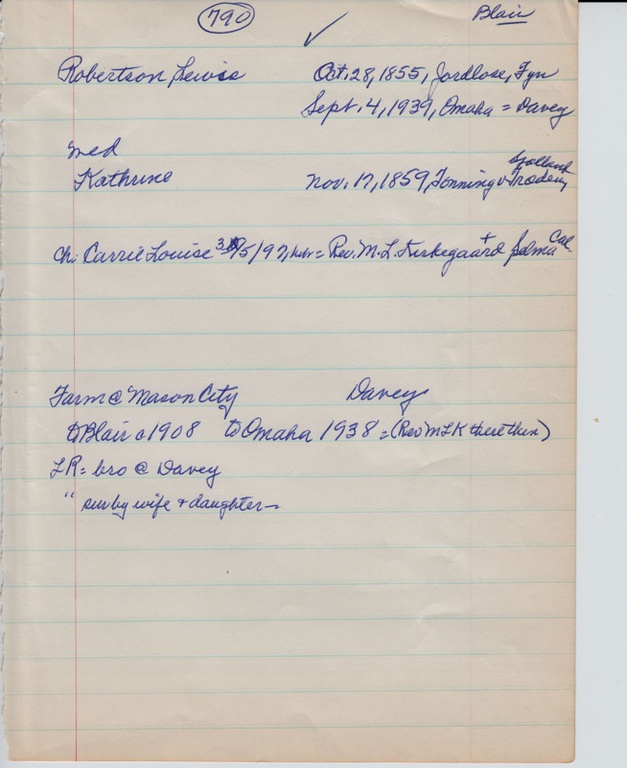 790
Blair
✓
Robertson, Lewis Oct. 28, 1855, Jordlose, Fyn
Sept. 4, 1939, Omaha = Davey
med
Kathrine Nov. 17, 1859,
ch: Carrie Louise 3/5/97, = Rev. M. L. Kirkegaard + Selma Cal.
Farm @ Mason City Davey
to Blair c 1908 to Omaha 1938 = (Rev MLK there then)
LR = bro @ Davey
" sur by wife + daughter